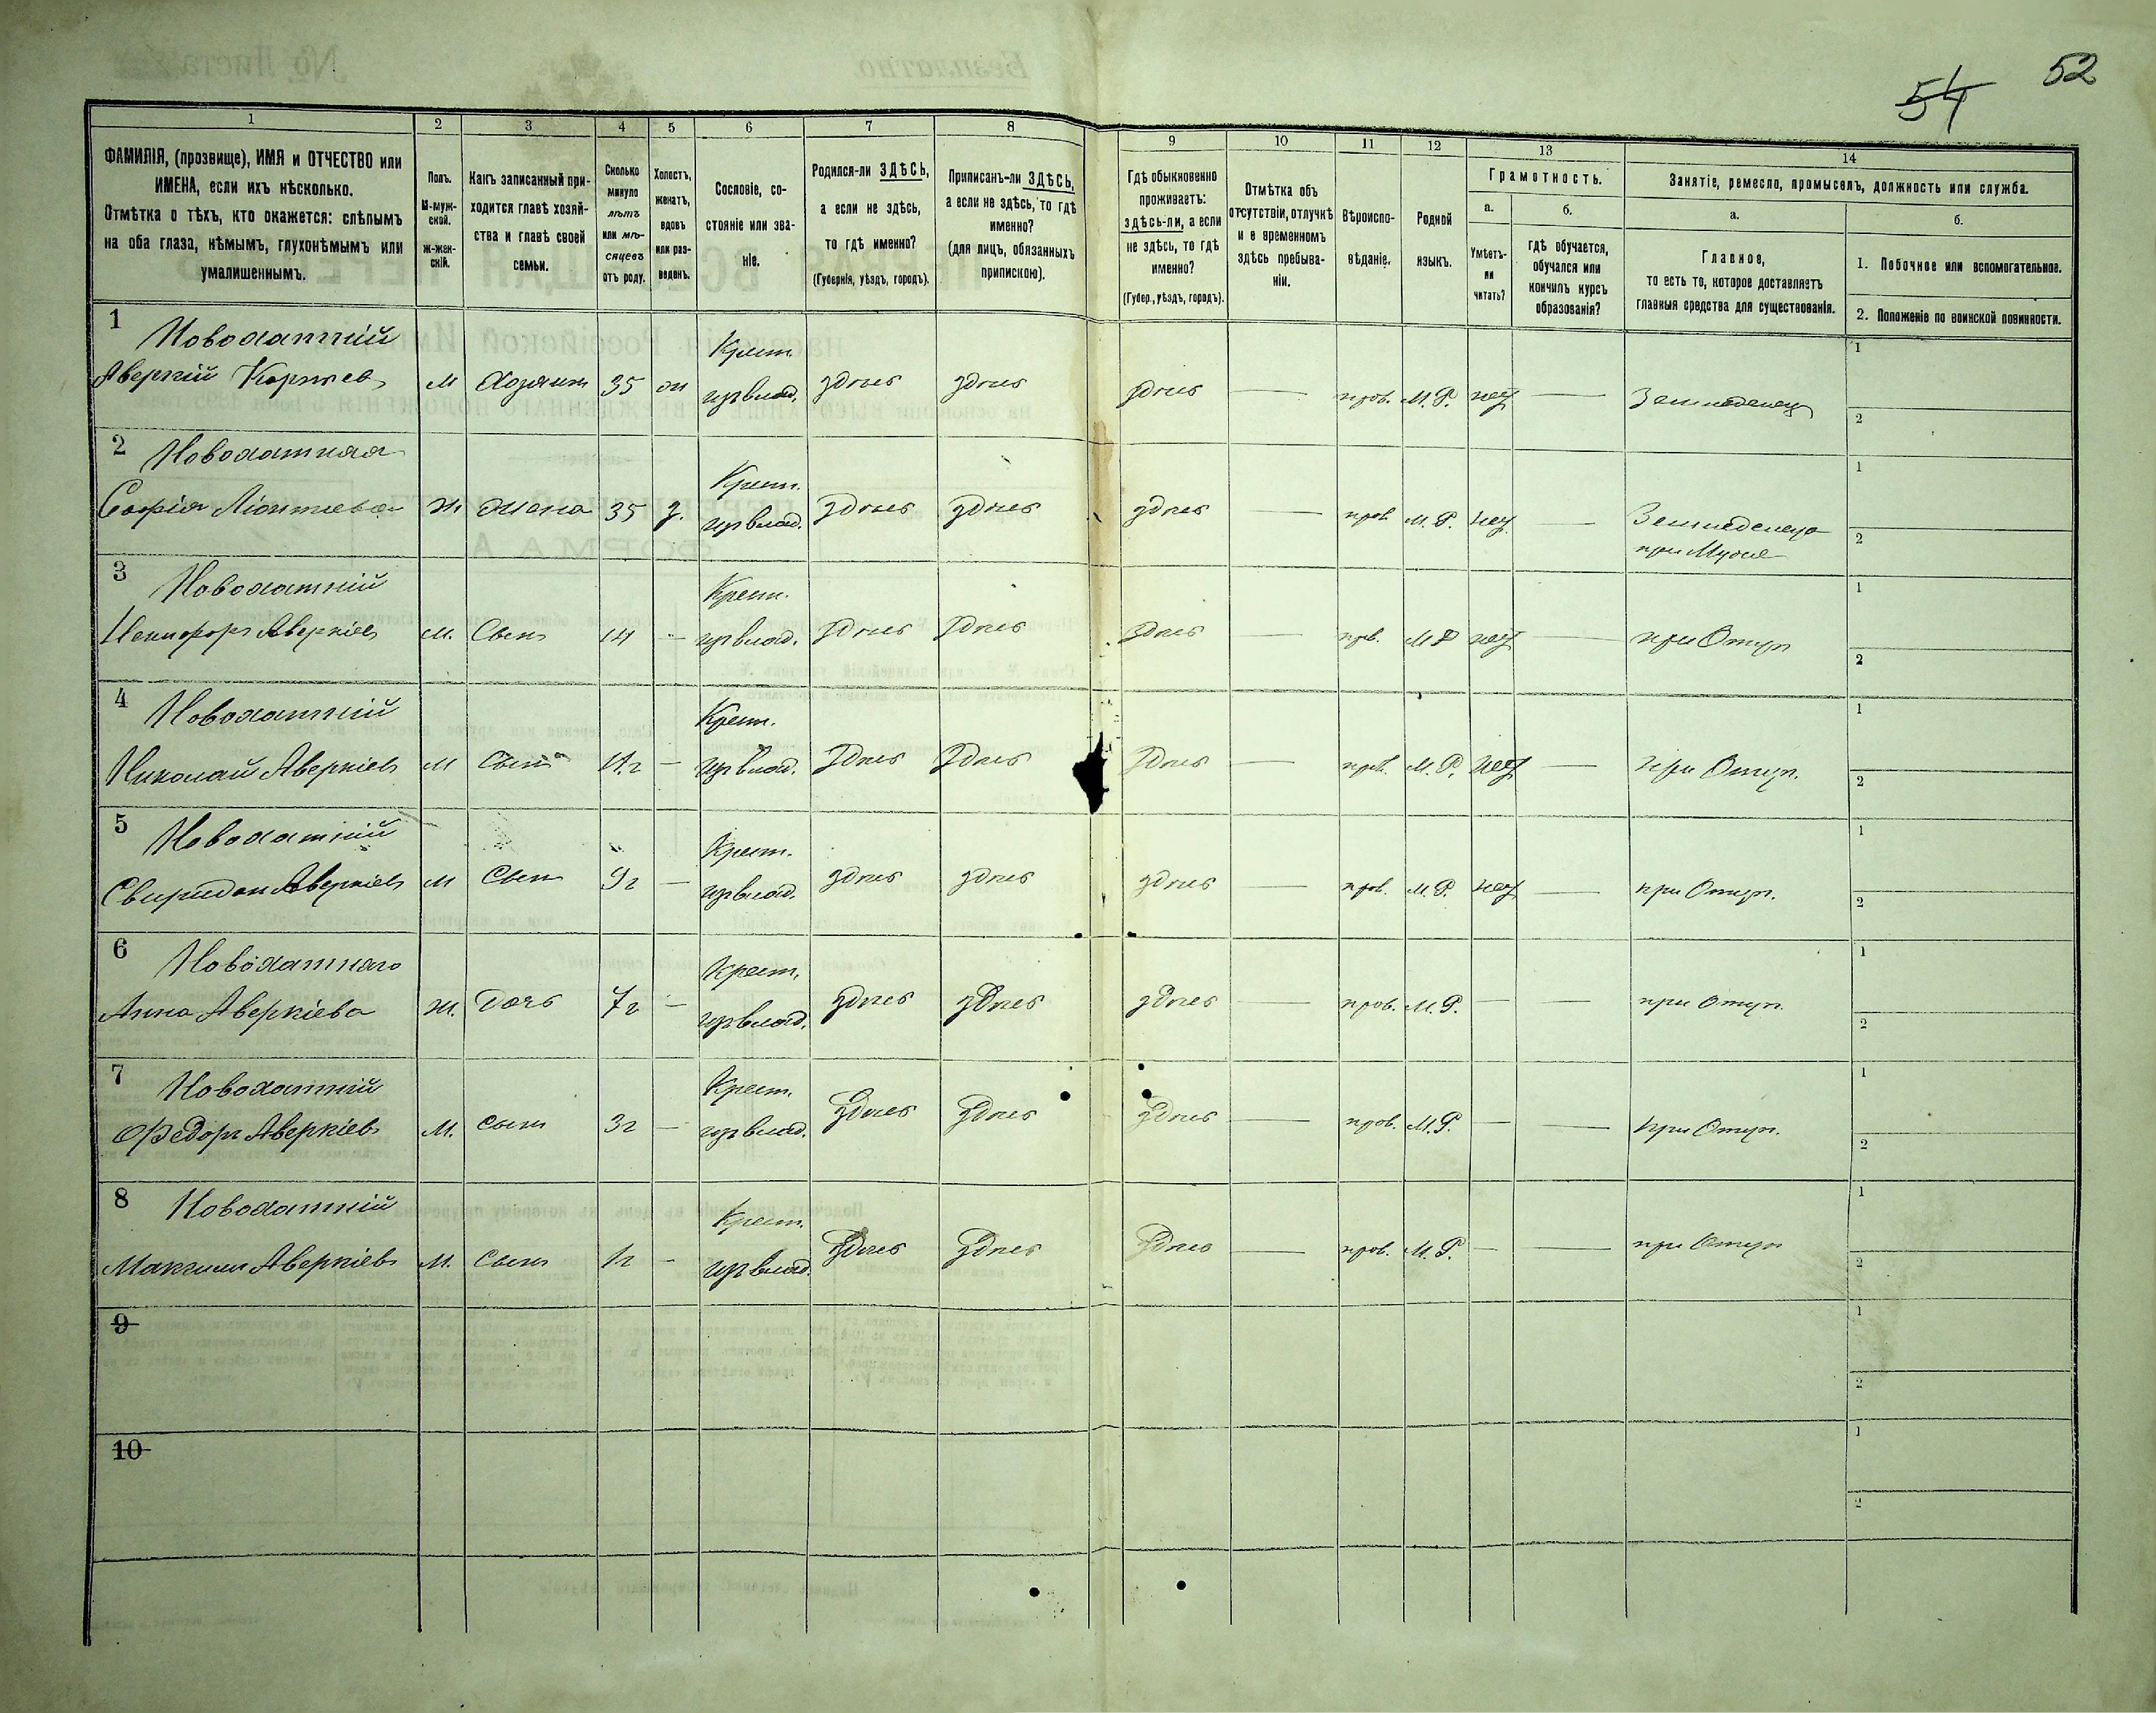 52
54
1
2
3
4
5
6
7
8
9
10
11
12
13
14
ФАМИЛІЯ, (прозвище), ИМЯ и ОТЧЕСТВО или
ИМЕНА, если ихъ нѣсколько.
Отмѣтка о тѣхъ, кто окажется: слѣпымъ
на оба глаза, нѣмымъ, глухонѣмымъ или
умалишеннымъ.
Полъ.
М-муж-
ской.
Ж-жен-
скій.
Какъ записанный при-
ходится главѣ хозяй-
ства и главѣ своей
семьи.
Сколько
минуло
лѣтъ
или мѣ-
сяцевъ
отъ роду.
Холостъ,
женатъ,
вдовъ
или раз-
веденъ.
Сословіе, со-
стояніе или зва-
ніе.
Родился-ли ЗДѢСЬ,
а если не здѣсь,
то гдѣ именно?
(Губернія, уѣздъ, городъ).
Приписанъ-ли ЗДѢСЬ,
а если не здѣсь, то гдѣ
именно?
(для лицъ, обязанныхъ
припискою).
Гдѣ обыкновенно
проживаетъ:
здѣсь-ли, а если
не здѣсь, то гдѣ
именно?
(Губер., уѣздъ, городъ).
Отмѣтка объ
отсутствіи, отлучкѣ
и о временномъ
здѣсь пребыва-
ніи.
Вѣроиспо-
вѣданіе.
Родной
языкъ.
Грамотность.
а.
Умѣетъ-
ли
читать?
б.
гдѣ обучается,
обучался или
кончилъ курсъ
образованія?
Занятіе, ремесло, промыселъ, должность или служба.
а.
Главное,
то есть то, которое доставляетъ
главныя средства для существованія.
б.
1. Побочное или вспомогательное.
2. Положеніе по воинской повинности.
1 Новохатній Крест. 1
Аверкій Корнѣевъ М Хозяинъ 35 изъ влад. здѣсь здѣсь здѣсь — прав. М.Р. нѣтъ — Земледѣлецъ
2
2 Новохатная Крест. 1
Софія Ліонтьева Ж. Жена 35 з. изъ влад. здѣсь здѣсь здѣсь — прав М.Р. нѣтъ — Земледѣлецъ
при Мужѣ 2
3 Новохатній Крест. 1
Некифоръ Аверкіевъ М. Сынъ 14 — изъ влад. здѣсь здѣсь здѣсь — прав. М Р нѣтъ — при Отцѣ
2
4 Новохатній Крест. 1
Николай Аверкіевъ М Сынъ — изъ влад. здѣсь здѣсь здѣсь — прав. М.Р. нѣтъ — при Отцѣ.
2
5 Новохатній Крест. 1
Свиридонъ Аверкіевъ М Сынъ 9 г — изъ влад. здѣсь здѣсь здѣсь — прав. М.Р. нѣтъ — при Отцѣ.
2
6 Новохатняго Крест. 1
Анна Аверкіева Ж. Дочь 7 г — изъ влад. здѣсь здѣсь здѣсь — прав. М.Р. — — при Отцѣ.
2
7 Новохатній Крест. 1
Федоръ Аверкіевъ М. Сынъ 3 г — изъ влад. здѣсь здѣсь здѣсь — прав. М.Р. — — при Отцѣ.
2
8 Новохатній Крест. 1
Максимъ Аверкіевъ М. Сынъ 1 г — изъ влад. здѣсь здѣсь здѣсь — прав. М.Р. — — при Отцѣ
2
9 1
2
10 1
2